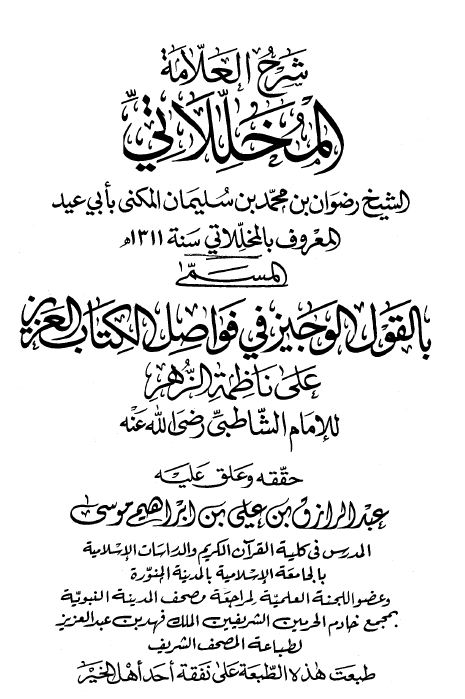 شرح العلّامة
المخلّلاتي
الشيخ رضوان بن محمّد بن سليمان المكنى بأبي عيد
المعروف بالمخلّلاتي سنة ١٣١١هـ
المسمّى
بالقول الوجيز في فواصل الكتاب العزيز
على ناظمة الزّهر
للإمام الشّاطبيّ رضي الله عنه
حقّقه وعلق عليه
عبد الرازق بن علي بن ابراهيم موسى
المدرس في كلية القرآن الكريم والدراسات الإسلامية
بالجامعة الإسلامية بالمدينة المنوّرة
وعضو اللجنة العلميّة لمراجعة مصحف المدينة النبويّة
بمجمع خادم الحرمين الشريفين الملك فهد بن عبد العزيز
لطباعة المصحف الشريف
طبعت هذه الطّبعة على نفقة أحد أهل الخير